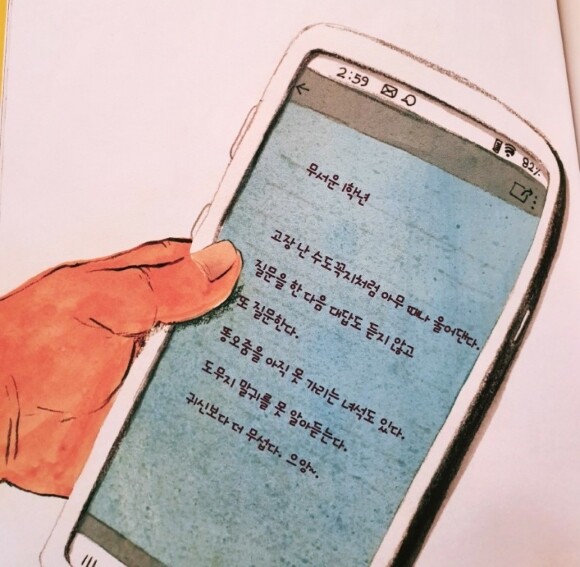 2:59
82%
무서운 1학년
고장 난 수도꼭지처럼 아무 때나 울어댄다.
질문을 한 다음 대답도 듣지 않고
또 질문한다.
똥오줌을 아직 못 가리는 녀석도 있다.
도무지 말귀를 못 알아듣는다.
귀신보다 더 무섭다. 으앙~.